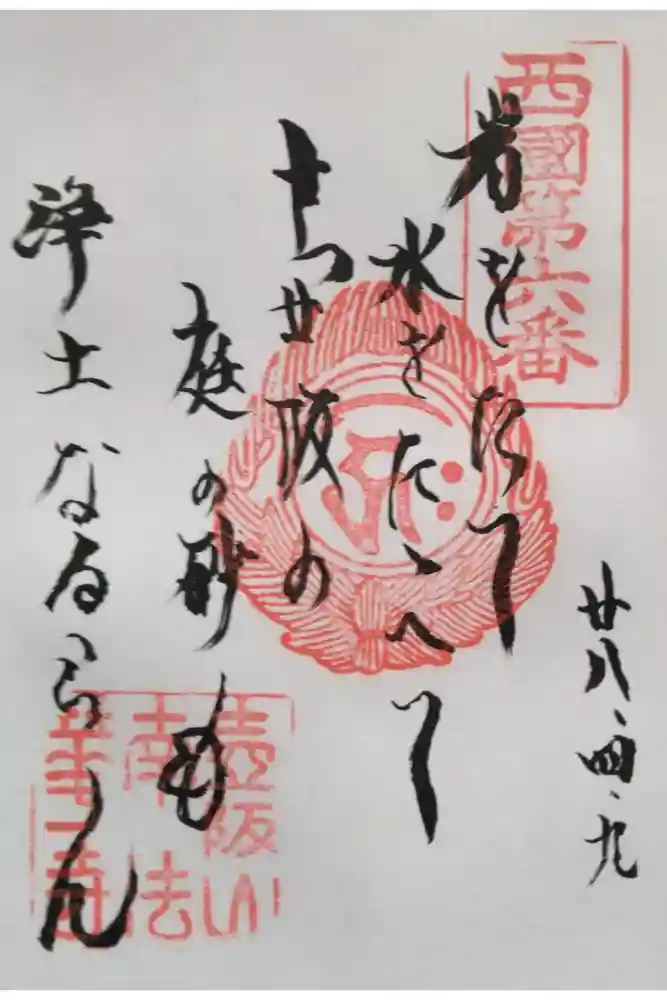 西國第六番
廿八、四、九
岩をたて
水をたゝへて
壷阪の
庭の砂も
浄土なるらん
壷阪山
南法
華寺